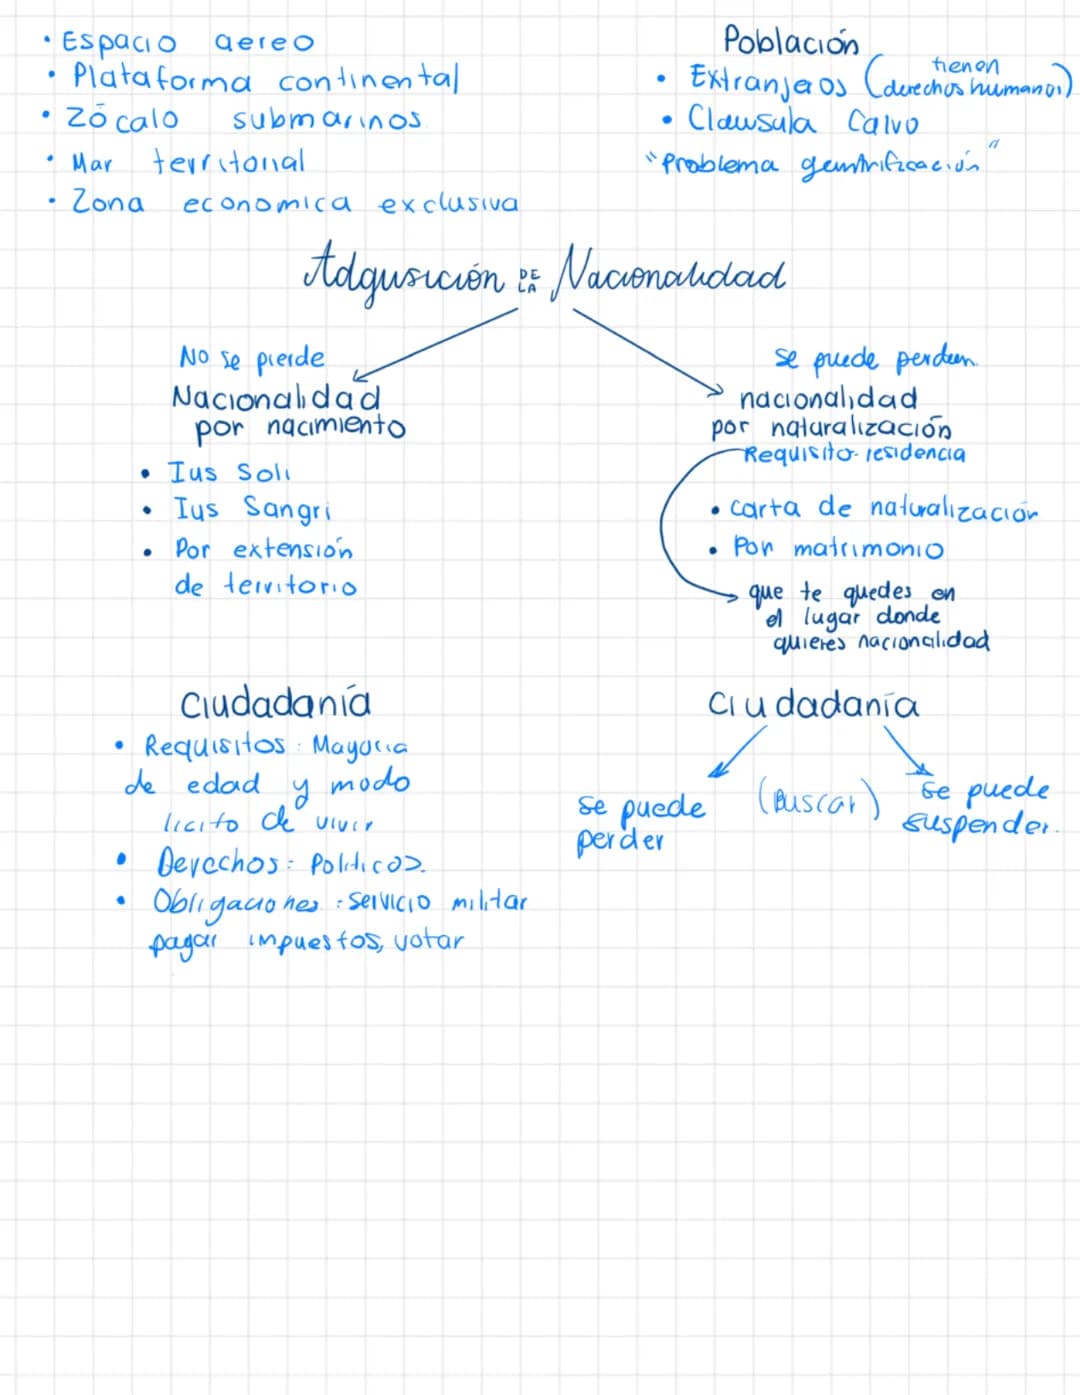 • Espacio aereo
• Plataforma continental
• Zócalo submarinos
• Mar territorial
• Zona economica exclusiva
Población
• Extranjeros (tienen derechos humanos)
• Clausula Calvo
"Problema gentrificación"
Adqusición DE LA Nacionalidad
No se pierde
Nacionalidad
por nacimiento
• Ius Soli
• Ius Sangri
• Por extensión
de territorio
Se puede perder.
nacionalidad
por naturalización
Requisito- residencia
• carta de naturalización
• Por matrimonio
que te quedes en
el lugar donde
quieres nacionalidad
Ciudadanía
• Requisitos: Mayoria
de edad y modo
licito de vivir
• Derechos: Politicos.
• Obligaciones: servicio militar
pagar impuestos, votar
Ciudadanía
se puede
perder
(Buscar)
se puede
suspender.